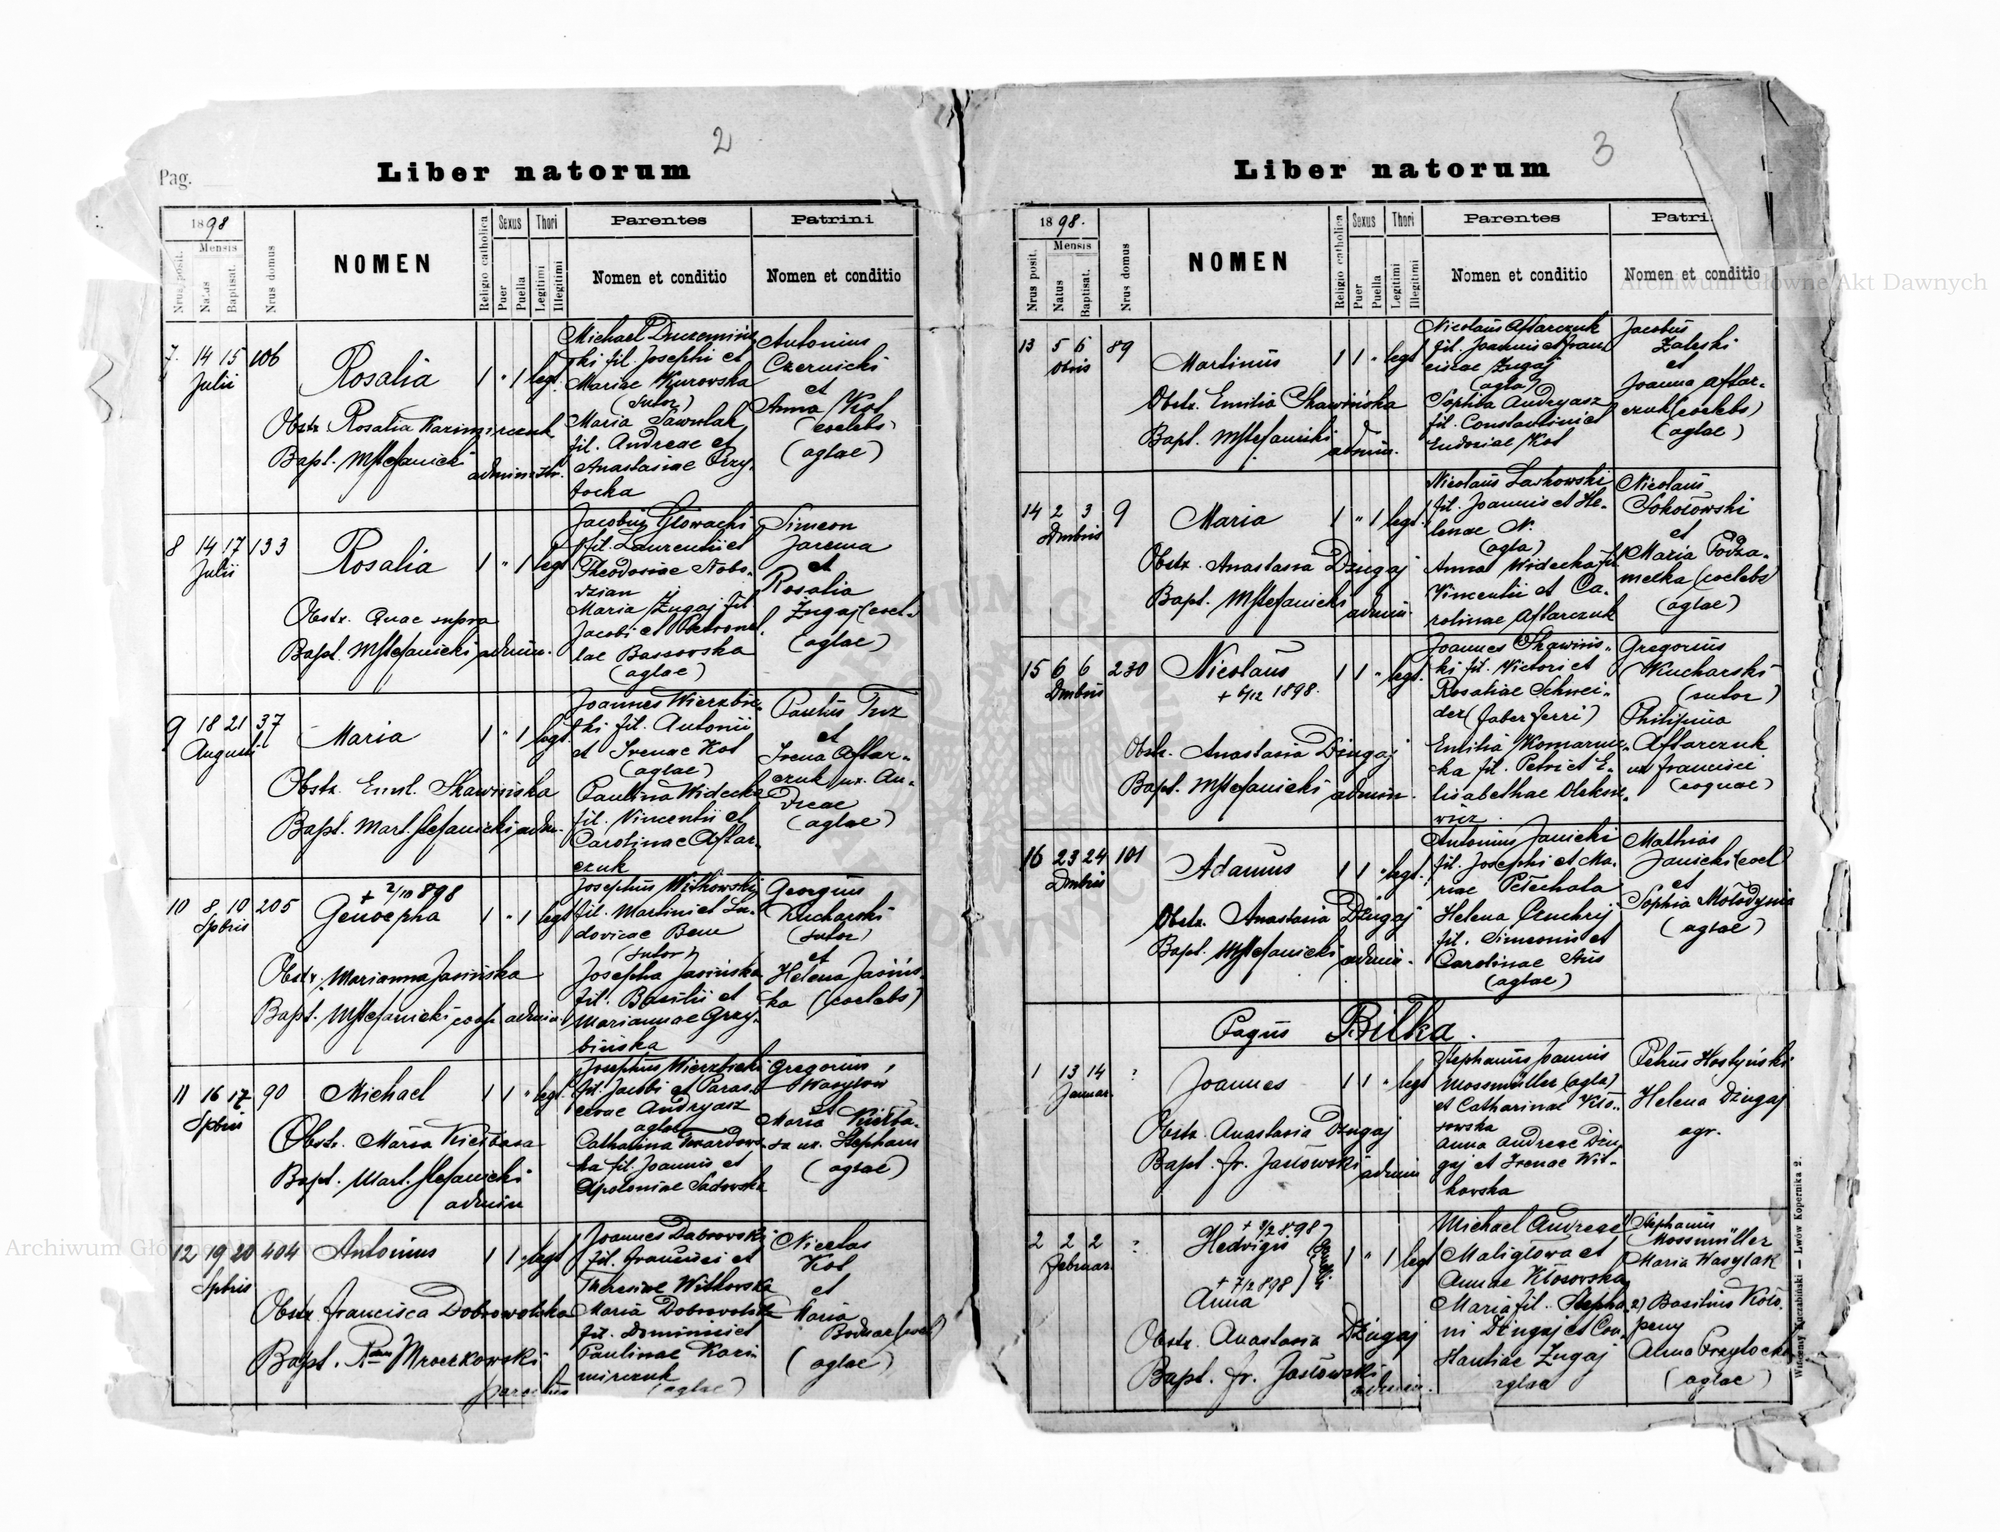 2
Liber natorum
Pag.
1898
Mensis
Nrus posit.
Natus
Baptisat.
Nrus domus
NOMEN
Religio catholica
Sexus
Puer
Puella
Thori
Legitimi
Illegitimi
Parentes
Nomen et conditio
Patrini
Nomen et conditio
7. 14 15 106
Julii
Rosalia
1 " 1 legt.
Obstr. Rosalia Kazimirczuk
Bapt. MStefanicki administr.
ki fil. Josephi et
Mariae Kurowska
(sutor)
Maria Sawulak
fil. Andreae et
Anastasiae Przy-
tocka
Antonius
Czernicki
et
Anna Kot
(coelebs)
(aglae)
8 14 17 133
Julii
Rosalia
1 " 1 legt
Obstr. Quae supra
Bapt. MStefanicki admin.
Jacobus Głowacki
fil. Laurentii et
Theodosiae
Maria Zugaj fil
Jacobi et Petronel-
lae Bassowska
(aglae)
Simeon
Jarema
et
Rosalia
Żugaj (coel.
(aglae)
9 18 21 37
Augusti
Maria
1 " 1 legt
Obstr. Emil. Skawińska
Bapt. Mart. Stefanicki adm.
Joannes Wierzbic-
ki fil. Antonii
et Irenae Kot
(aglae)
Paulina Widecka
fil. Vincentii et
Carolinae Aftar-
czuk
Paulus Turz
et
Irena Aftar-
czuk ux. An-
dreae
(aglae)
10 8 10 205
Spbris
+ 2/10 898
Genoepha
1 " 1 legt
Obstr. Marianna Jasińska
Bapt. MStefanicki coop. admin.
Josephus Witkowski
fil. Martini et Lu-
dovicae Bem
(sutor)
Josepha Jasińska
fil. Basilii et
Mariannae Grzy-
bińska
Georgius
Kucharski
(sutor)
et
Helena Jasińs-
ka (coelebs)
11 16 17 90
Spbris
Michael
1 1 " legt.
Obstr. Maria Kiełbasa
Bapt. Mart. Stefanicki
admin
Josephus Wierzbicki
fil. Jacobi et Paras-
cevae Andryasz
aglae
Catharina Twardows-
ka fil. Joannis et
Apoloniae Sadowska
Gregorius
Wasylow
et
Maria Kiełba-
sa ux. Stephani
(aglae)
12 19 20 404
Spbris
Antonius
1 1 " legt
Obstr. Francisca Dobrowolska
Bapt. Rom Mroczkowski
parochus
Joannes Dabrowski
fil. Francisci et
Theresiae Witkowska
Maria Dobrowolska
fil. Dominici et
Paulinae Kazi-
mirczuk
(aglae)
Nicolas
Kot
et
Maria
Bodnar (coel)
(aglae)
3
Liber natorum
1898.
Mensis
Nrus posit.
Natus
Baptisat.
Nrus domus
NOMEN
Religio catholica
Sexus
Puer
Puella
Thori
Legitimi
Illegitimi
Parentes
Nomen et conditio
Patri
Nomen et conditio
13 5 6 89
Martinus
1 1 " legt
Obstr. Emilia Skawińska
Bapt. MStefanicki admin.
Nicolaus Aftarczuk
fil. Joannis et Fran-
ciscae Zugaj
(agla)
Sophia Andryasz
fil. Constantini et
Eudoxiae Kot
Jacobus
Zaleski
et
Joanna Aftar-
czuk (coelebs)
(aglae)
14 2 3 9
Dmbris
Maria
1 " 1 legt.
Obstr. Anastasia Dzugaj
Bapt. MStefanicki admin.
Nicolaus Laskowski
fil. Joannis et He-
lenae N.
(agla)
Anna Widecka fil
Vincentii et Ca-
rolinae Aftarczuk
Nicolaus
Sokołowski
et
Maria Podza-
melka (coelebs)
(aglae)
15 6 6 230
Dmbris
Nicolaus
+ 6/12 1898.
1 1 " legt.
Obstr. Anastasia Dzugaj
Bapt. MStefanicki admin.
Joannes Skawińs-
ki fil. Victori et
Rosaliae Schnei-
der (faber ferri)
Emilia Komarnic-
ka fil. Petri et E-
lisabethae Oleksie-
wicz.
Gregorius
Kucharski
(sutor)
Philipina
Aftarczuk
ux Francisci
16 23 24 101
Dmbris
Adamus
1 1 " legt.
Obstr. Anastasia Dzugaj
Bapt. MStefanicki admin.
Antonius Janicki
fil. Josephi et Ma-
riae Petechata
Helena
fil. Simeonis et
Carolinae
(aglae)
Mathias
Janicki (coel)
et
Sophia Mołodynia
(aglae)
Pagus Biłka.
1 13 14 ?
Januar.
Joannes
1 1 " legt
Obstr. Anastasia Dzugaj
Bapt. fr. Jasłowski admin
Stephanus Joannis
Mossmüller (agla)
et Catharinae Kło-
sowska
Anna Andreae Dzu-
gaj et Irenae Wit-
kowska
Petrus Hostyński
Helena Dzugaj
agr.
2 2 2 ?
Februar.
+ 9/2 898
Hedvigis
gemelli
+ 7/2 898
Anna
1 " 1 legt
Obstr. Anastasia Dzugaj
Bapt. fr. Jasłowski admin.
Michael Andreae
Maligłowa et
Annae Kłosowska
Maria fil. Stepha-
ni Dzugaj et Con-
stantiae Zugaj
aglae
1) Stephanus
Mossmüller
Maria Wasylak
2) Basilius
Anna Przytocka
(aglae)
Wincenty Kuczabiński — Lwów Kopernika 2.
Archiwum Główne Akt Dawnych